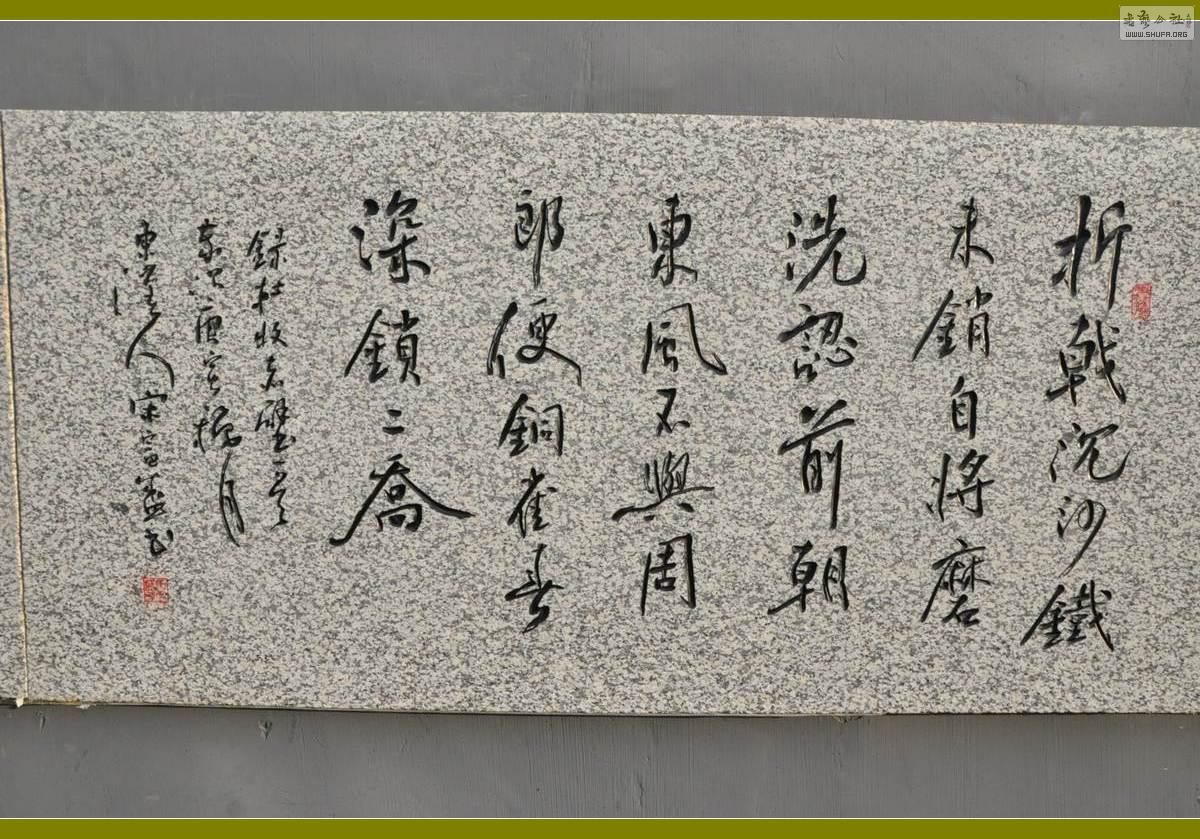 折戟沉沙鐵
未銷自將磨
洗認前朝
東風不與周
郎便銅雀春
深鎖二喬
録杜牧赤壁一首
歲次庚寅月
東人宋富書
书艺公社
WWW.SHUFA.ORG